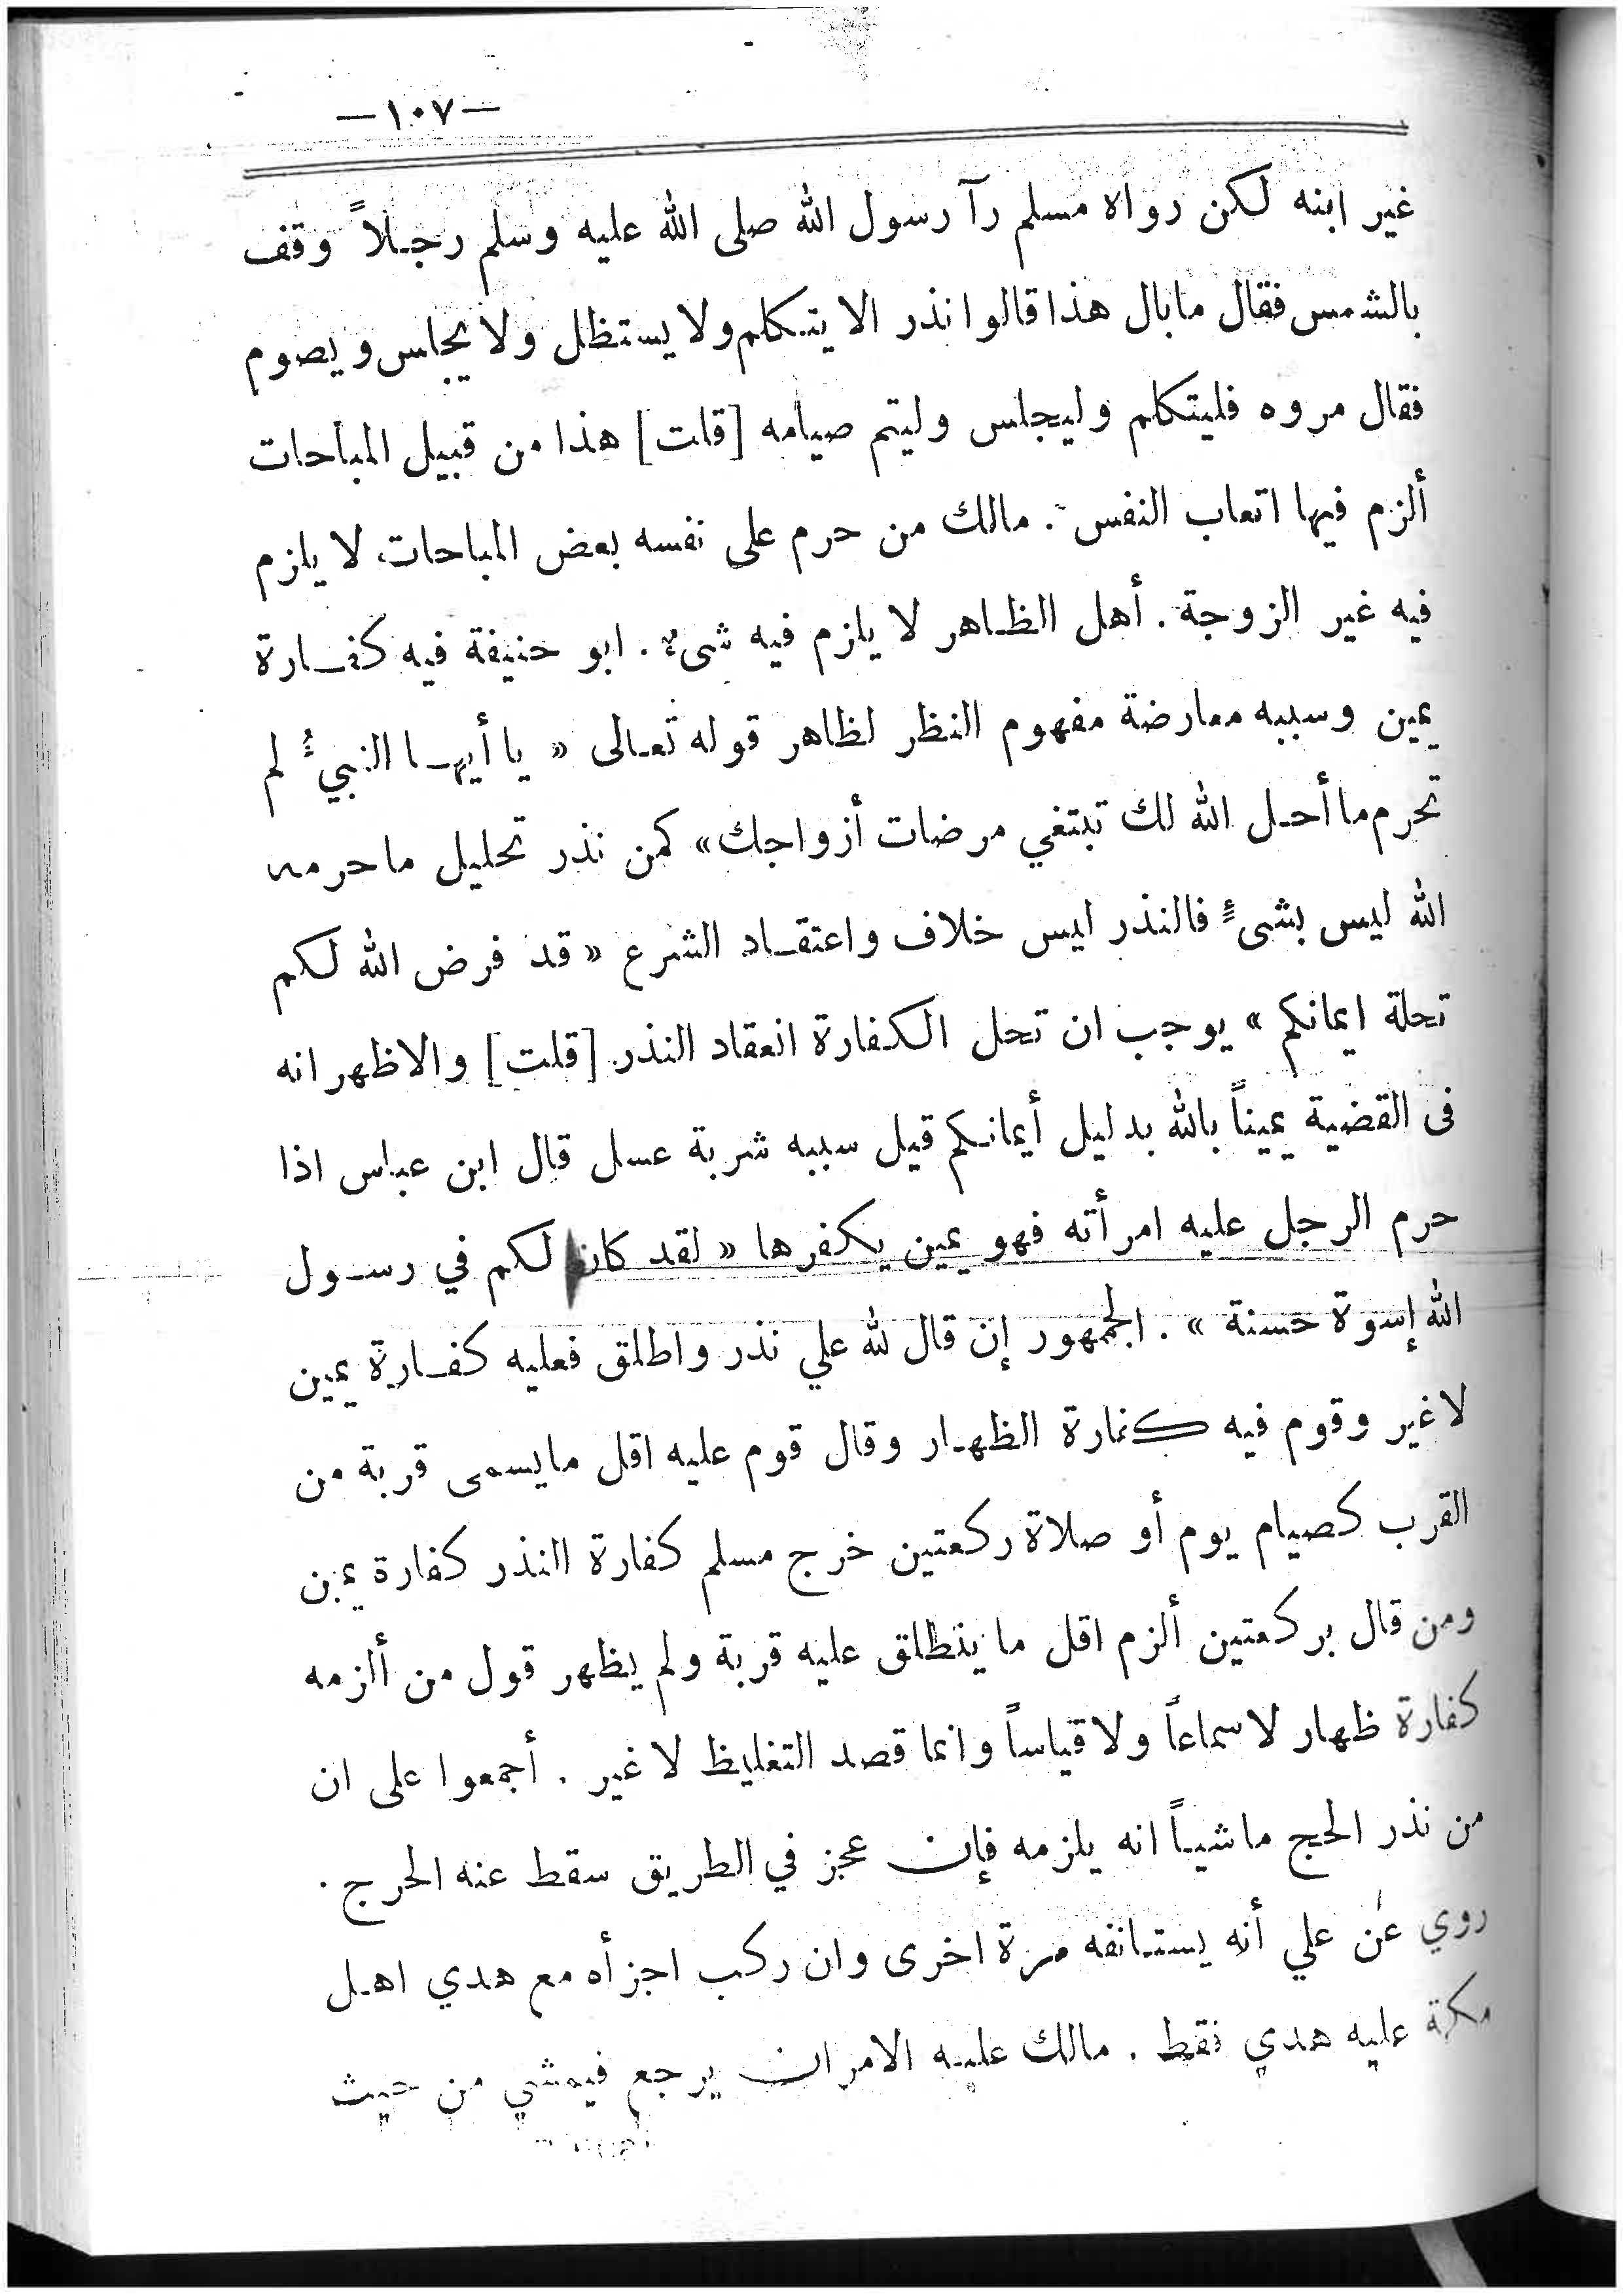 —١٠٧—
غير ابنه لكن رواه مسلم رآ رسول الله صلى الله عليه وسلم رجلاً وقف
بالشمس فقال مابال هذا قالوا نذر الا يتكلم ولا يستظل ولا يجلس ويصوم
فقال مروه فليتكلم وليجلس وليتم صيامه [قلت] هذا من قبيل المباحات
ألزم فيها اتعاب النفس . مالك من حرم على نفسه بعض المباحات لا يلزم
فيه غير الزوجة . أهل الظاهر لا يلزم فيه شىء . ابو حنيفة فيه كفارة
يمين وسببه معارضة مفهوم النظر لظاهر قوله تعالى « يا أيها النبيُّ لم
تحرم ما أحل الله لك تبتغي مرضات أزواجك » كمن نذر تحليل ما حرمه
الله ليس بشىء فالنذر ليس خلاف واعتقاد الشرع « قد فرض الله لكم
تحلة ايمانكم » يوجب ان تحل الكفارة انعقاد النذر [قلت] والاظهر انه
فى القضية يميناً بالله بدليل أيمانكم قيل سببه شربة عسل قال ابن عباس اذا
حرم الرجل عليه امرأته فهو يمين يكفرها « لقد كان لكم في رسول
الله إسوة حسنة » . الجمهور إن قال لله علي نذر واطلق فعليه كفارة يمين
لا غير وقوم فيه كفارة الظهار وقال قوم عليه اقل مايسمى قربة من
القرب كصيام يوم أو صلاة ركعتين خرج مسلم كفارة النذر كفارة يمين
ومن قال بركعتين ألزم اقل ما ينطلق عليه قربة ولم يظهر قول من ألزمه
كفارة ظهار لا سماعاً ولا قياساً وانما قصد التغليظ لا غير . أجمعوا على ان
من نذر الحج ماشياً انه يلزمه فإن عجز في الطريق سقط عنه الحرج .
روي عن علي أنه يستانفه مرة اخرى وان ركب اجزأه مع هدي اهل
مكة عليه هدي فقط . مالك عليه الامران يرجع فيمشي من حيث